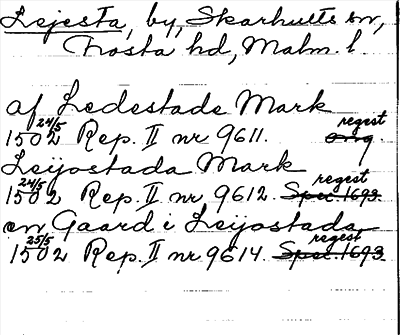 Lejesta, by, Skarhults sn,
Frosta hd, Malm. l.
af Ledestade Mark
1502 24/5 Rep. II nr 9611. orig regest
Leijostada Mark
1502 24/5 Rep. II nr 9612. Spec. 1693 regest
en Gaard i Leijostada
1502 25/5 Rep. II nr 9614. Spec. 1693 regest